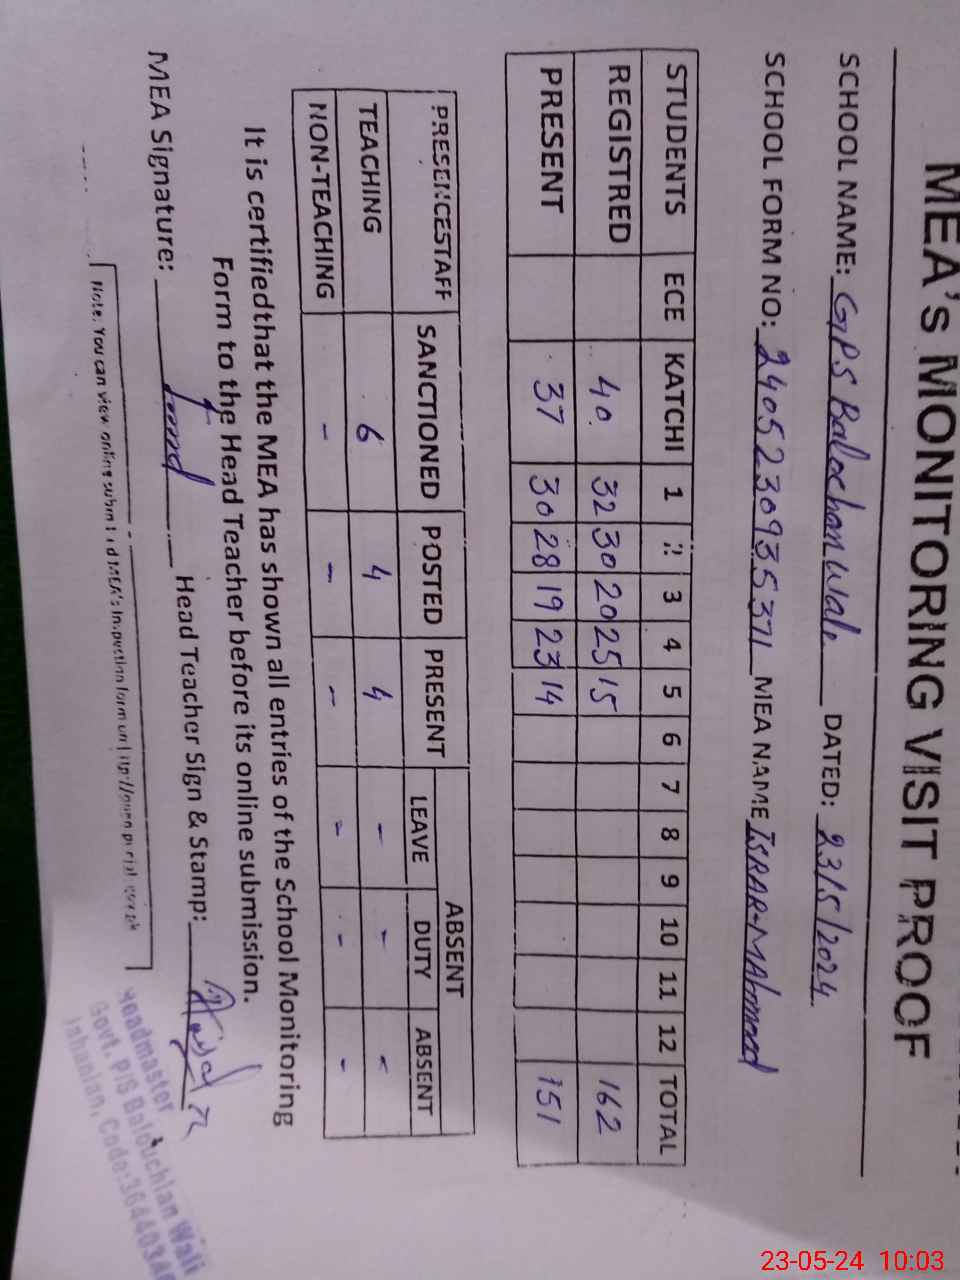 MEA's MONITORING VISIT PROOF
SCHOOL NAME: GPS Balochan Wala DATED: 23/5/2024
SCHOOL FORM NO: 24052309353711 MEA NAME ISRAR-MAhmood
STUDENTS ECE KATCHI 1 2 3 4 5 6 7 8 9 10 11 12 TOTAL
REGISTRED 40 32 30 20 25 15 162
PRESENT 37 30 28 19 23 14 151
PRESENCESTAFF SANCTIONED POSTED PRESENT ABSENT
LEAVE DUTY ABSENT
TEACHING 6 4 4 - - -
NON-TEACHING - - - - - -
It is certifiedthat the MEA has shown all entries of the School Monitoring
Form to the Head Teacher before its online submission.
MEA Signature: Head Teacher Sign & Stamp:
Headmaster
Govt. P/S Balouchian Wali
Jahanian, Code:3644034
Note: You can view online submitted MEA's Inspection form on
23-05-24 10:03